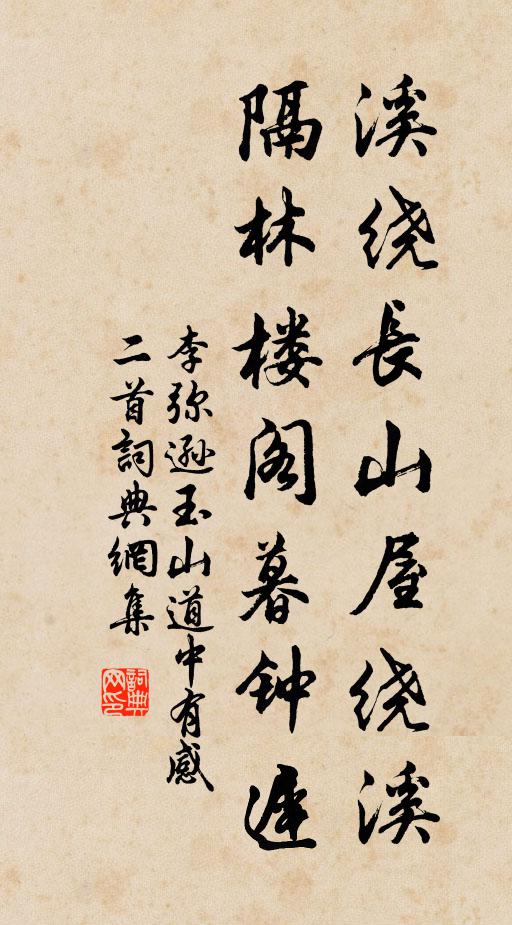 溪绕長山屋绕溪
隔林楼阁暮钟遲
李弥遜玉山道中有感
二首詞典網集
詞典网印